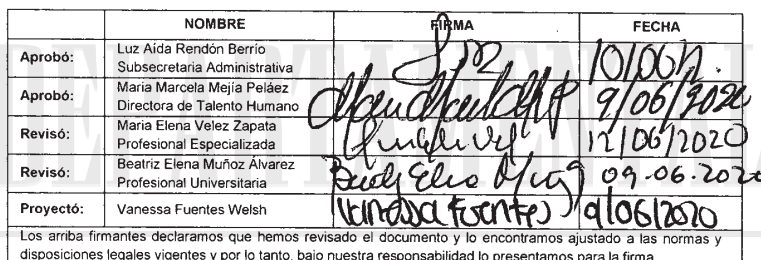 NOMBRE FIRMA FECHA
Aprobó: Luz Aída Rendón Berrío
Subsecretaria Administrativa
Aprobó: Maria Marcela Mejía Peláez
Directora de Talento Humano 9/06/2020
Revisó: Maria Elena Velez Zapata
Profesional Especializada 12/06/2020
Revisó: Beatriz Elena Muñoz Álvarez
Profesional Universitaria 09.06.2020
Proyectó: Vanessa Fuentes Welsh Vanessa Fuentes 9/06/2020
Los arriba firmantes declaramos que hemos revisado el documento y lo encontramos ajustado a las normas y
disposiciones legales vigentes y por lo tanto, bajo nuestra responsabilidad lo presentamos para la firma.